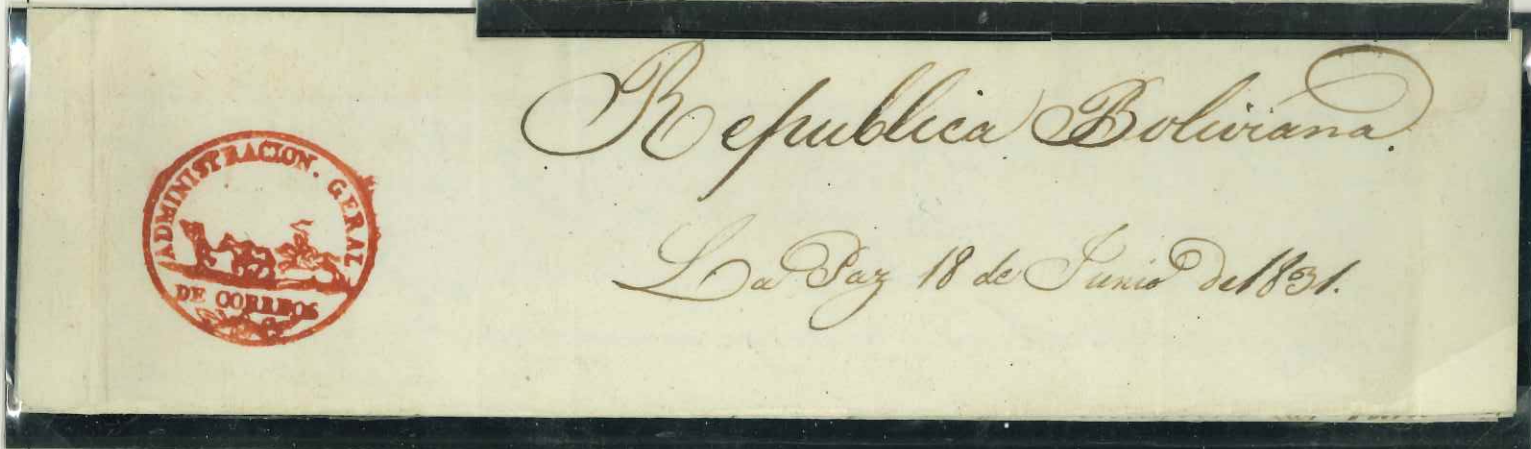 ADMINISTRACION. GERAL
DE CORREOS
Republica Boliviana.
La Paz 18 de Junio de 1831.